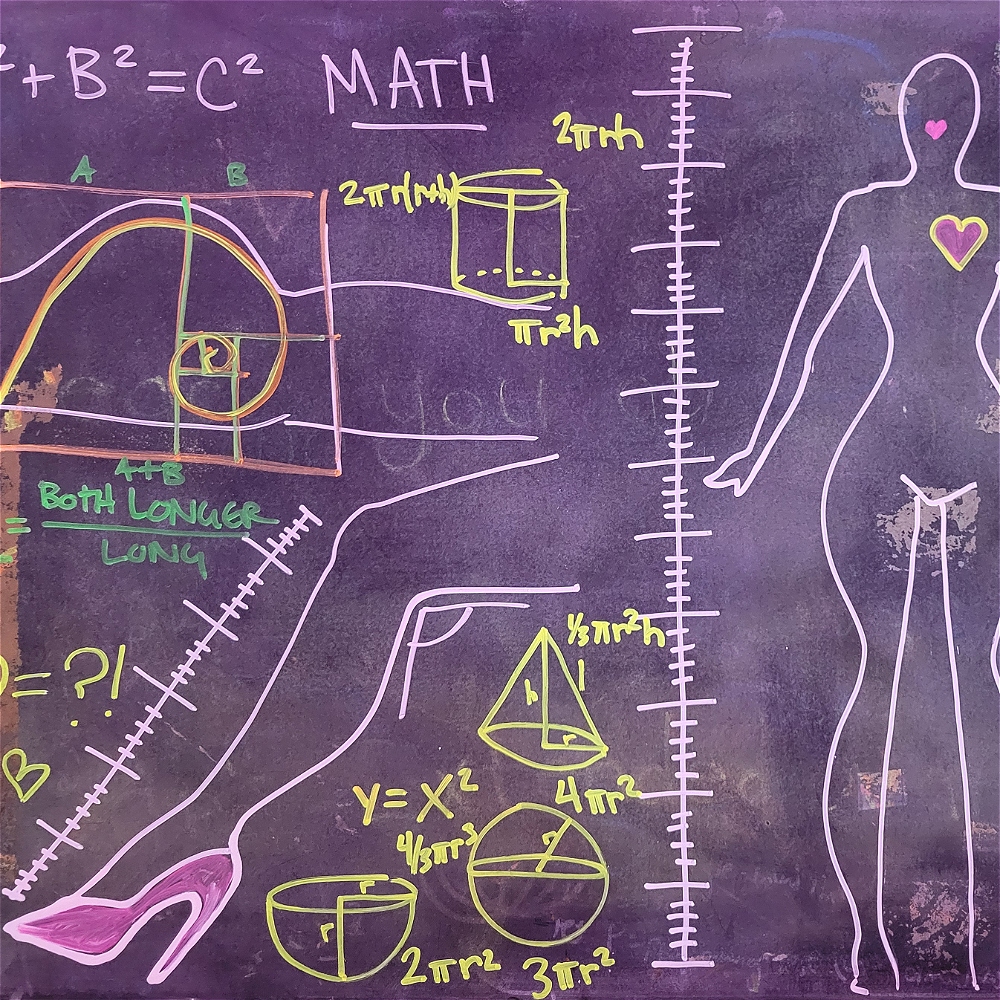 ² + B² = C²
MATH
A
B
2πrh
2πr(r+h)
πr²h
you
A+B
= BOTH LONGER
LONG
= ?!
B
1/3πr²h
h
r
l
Y = X²
4πr²
4/3πr³
r
r
r
2πr²
3πr²